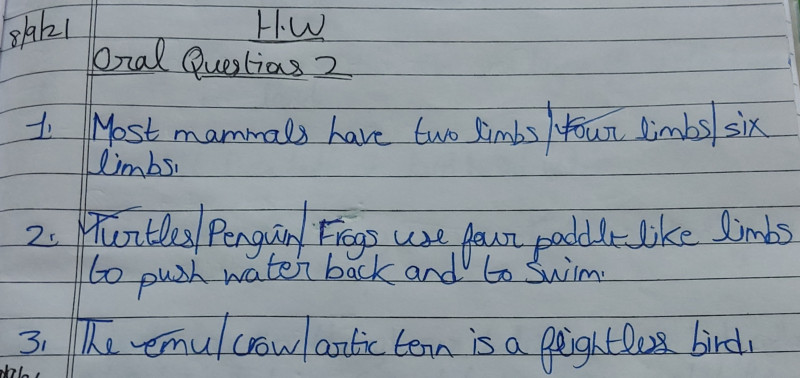 8/9/21 H.W
Oral Questions 2
1. Most mammals have two limbs/four limbs/six
limbs.
2. Turtles/Penguin/Frogs use four paddle-like limbs
to push water back and to swim.
3. The emu/crow/artic tern is a flightless bird.